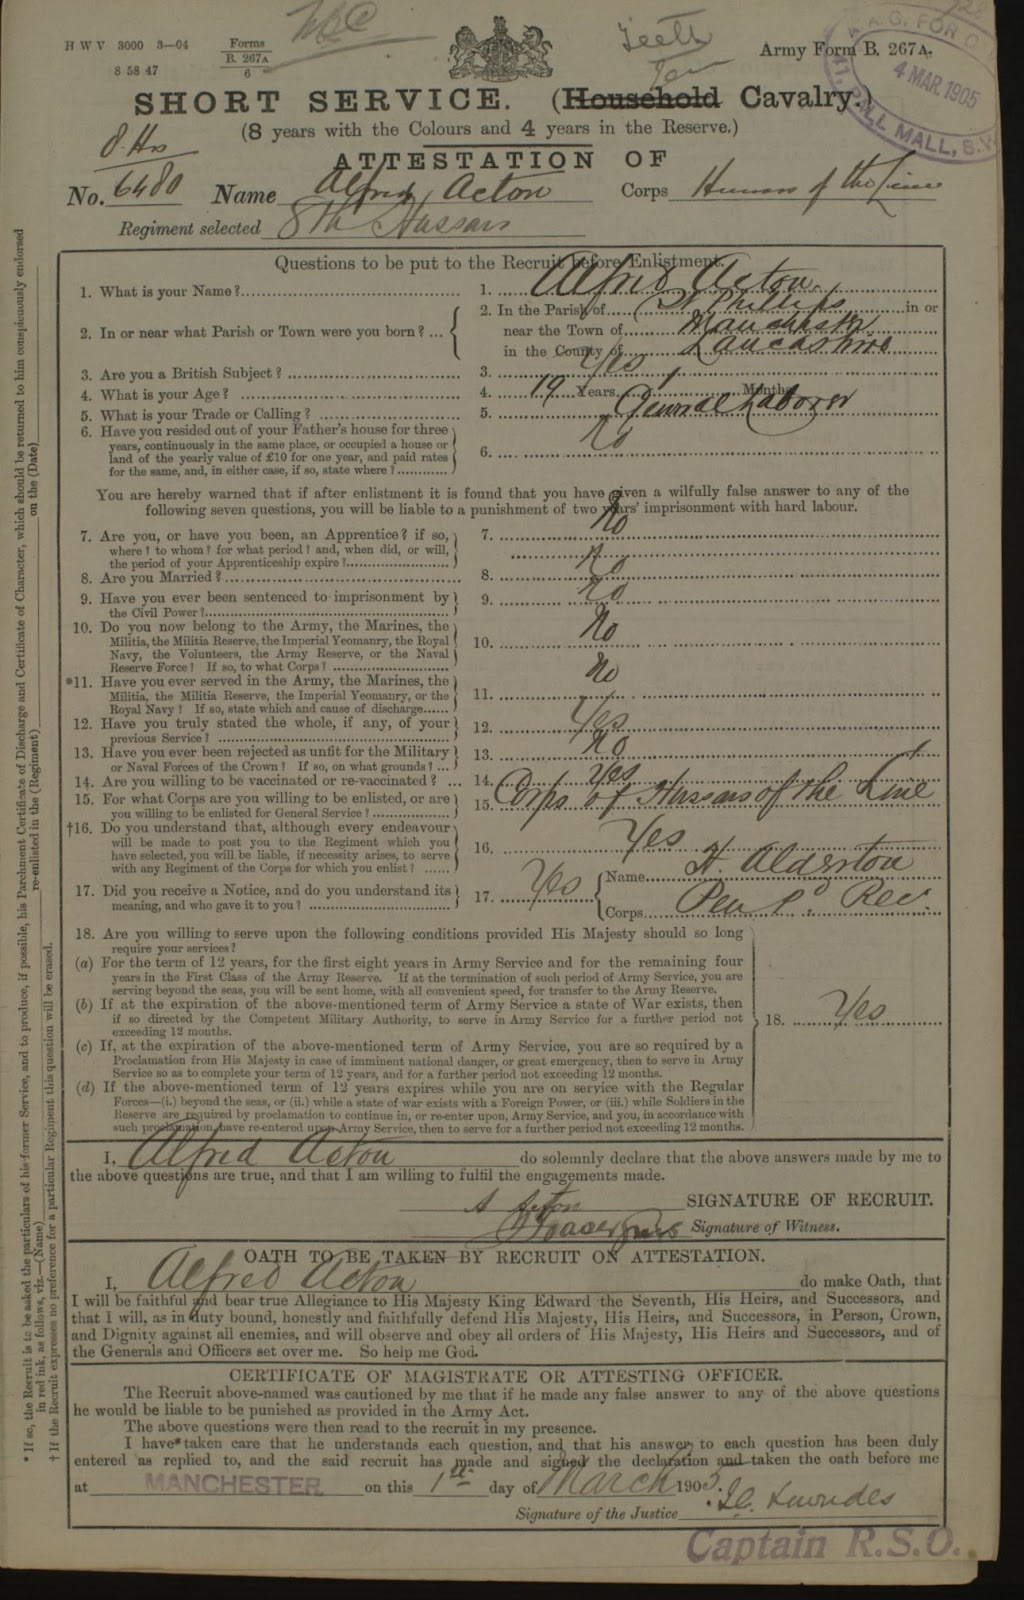 H W V 3000 3—04
8 58 47
Forms
B. 267A
6
Teeth
Army Form B. 267A.
A.G. FOR
4 MAR. 1905
PALL MALL, S.W.
SHORT SERVICE. (Household Cavalry.)
(8 years with the Colours and 4 years in the Reserve.)
8. Hrs
ATTESTATION OF
No. 6480 Name Alfred Acton Corps Hussars of the Line
Regiment selected 8th Hussars
Questions to be put to the Recruit before Enlistment.
1. What is your Name? 1. Alfred Acton.
2. In or near what Parish or Town were you born? ... 2. In the Parish of St Phillips in or
near the Town of Manchester
in the County of Lancashire
3. Are you a British Subject? 3. Yes
4. What is your Age? 4. 19 Years 1 Months
5. What is your Trade or Calling? 5. General Laborer
6. Have you resided out of your Father's house for three
years, continuously in the same place, or occupied a house or
land of the yearly value of £10 for one year, and paid rates
for the same, and, in either case, if so, state where? 6. No
You are hereby warned that if after enlistment it is found that you have given a wilfully false answer to any of the
following seven questions, you will be liable to a punishment of two years' imprisonment with hard labour.
7. Are you, or have you been, an Apprentice? if so, 7. No
where? to whom? for what period? and, when did, or will,
the period of your Apprenticeship expire?
8. Are you Married? 8. No
9. Have you ever been sentenced to imprisonment by 9. No
the Civil Power?
10. Do you now belong to the Army, the Marines, the
Militia, the Militia Reserve, the Imperial Yeomanry, the Royal
Navy, the Volunteers, the Army Reserve, or the Naval
Reserve Force? If so, to what Corps? 10. No
*11. Have you ever served in the Army, the Marines, the
Militia, the Militia Reserve, the Imperial Yeomanry, or the
Royal Navy? If so, state which and cause of discharge 11. No
12. Have you truly stated the whole, if any, of your
previous Service? 12. Yes
13. Have you ever been rejected as unfit for the Military
or Naval Forces of the Crown? If so, on what grounds? 13. No
14. Are you willing to be vaccinated or re-vaccinated? 14. Yes
15. For what Corps are you willing to be enlisted, or are
you willing to be enlisted for General Service? 15. Corps of Hussars of the Line
†16. Do you understand that, although every endeavour
will be made to post you to the Regiment which you
have selected, you will be liable, if necessity arises, to serve
with any Regiment of the Corps for which you enlist? 16. Yes
17. Did you receive a Notice, and do you understand its
meaning, and who gave it to you? 17. Yes Name H. Alderton
Corps Rec.
18. Are you willing to serve upon the following conditions provided His Majesty should so long
require your services?
(a) For the term of 12 years, for the first eight years in Army Service and for the remaining four
years in the First Class of the Army Reserve. If at the termination of such period of Army Service, you are
serving beyond the seas, you will be sent home, with all convenient speed, for transfer to the Army Reserve.
(b) If at the expiration of the above-mentioned term of Army Service a state of War exists, then
if so directed by the Competent Military Authority, to serve in Army Service for a further period not
exceeding 12 months.
18. Yes
(c) If, at the expiration of the above-mentioned term of Army Service, you are so required by a
Proclamation from His Majesty in case of imminent national danger, or great emergency, then to serve in Army
Service so as to complete your term of 12 years, and for a further period not exceeding 12 months.
(d) If the above-mentioned term of 12 years expires while you are on service with the Regular
Forces—(i.) beyond the seas, or (ii.) while a state of war exists with a Foreign Power, or (iii.) while Soldiers in the
Reserve are required by proclamation to continue in, or re-enter upon, Army Service, and you, in accordance with
such proclamation, have re-entered upon Army Service, then to serve for a further period not exceeding 12 months.
I, Alfred Acton do solemnly declare that the above answers made by me to
the above questions are true, and that I am willing to fulfil the engagements made.
A Acton SIGNATURE OF RECRUIT.
Signature of Witness.
OATH TO BE TAKEN BY RECRUIT ON ATTESTATION.
I, Alfred Acton do make Oath, that
I will be faithful and bear true Allegiance to His Majesty King Edward the Seventh, His Heirs, and Successors, and
that I will, as in duty bound, honestly and faithfully defend His Majesty, His Heirs, and Successors, in Person, Crown,
and Dignity against all enemies, and will observe and obey all orders of His Majesty, His Heirs and Successors, and of
the Generals and Officers set over me. So help me God.
CERTIFICATE OF MAGISTRATE OR ATTESTING OFFICER.
The Recruit above-named was cautioned by me that if he made any false answer to any of the above questions
he would be liable to be punished as provided in the Army Act.
The above questions were then read to the recruit in my presence.
I have taken care that he understands each question, and that his answer to each question has been duly
entered as replied to, and the said recruit has made and signed the declaration and taken the oath before me
at MANCHESTER on this 1st day of March 1905.
Signature of the Justice
Captain R.S.O.
* If so, the Recruit is to be asked the particulars of his former Service, and to produce, if possible, his Parchment Certificate of Discharge and Certificate of Character, which should be returned to him conspicuously endorsed
in red ink, as follows, viz.—(Name) re-enlisted in the (Regiment) on the (Date)
† If the Recruit expresses no preference for a particular Regiment this question will be erased.